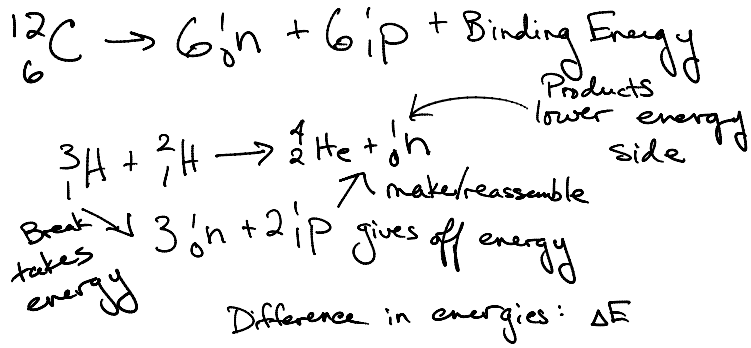 ¹²₆C → 6 ¹₀n + 6 ¹₁p + Binding Energy
Products
lower energy
side
³₁H + ²₁H → ⁴₂He + ¹₀n
make/reassemble
Break
takes
energy
3 ¹₀n + 2 ¹₁p gives off energy
Difference in energies: ΔE